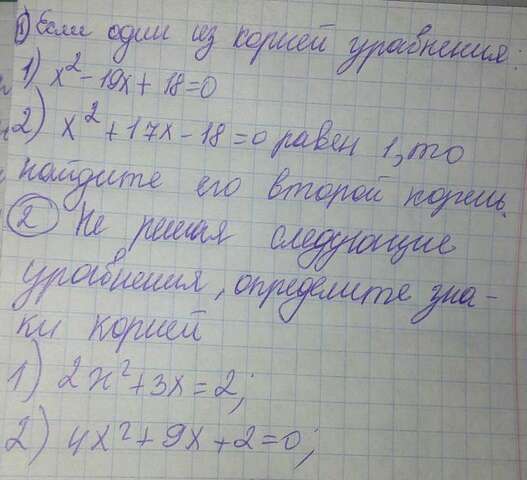 1) Если один из корней уравнения:
1) x² - 19x + 18 = 0
2) x² + 17x - 18 = 0 равен 1, то
найдите его второй корень.
2 Не решая следующие
уравнения, определите зна-
ки корней
1) 2x² + 3x = 2;
2) 4x² + 9x + 2 = 0;